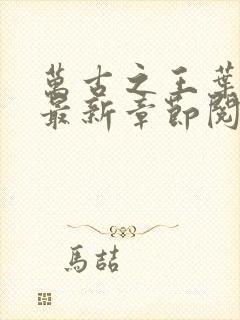 萬古之王葉
最新章節閱
馬喆